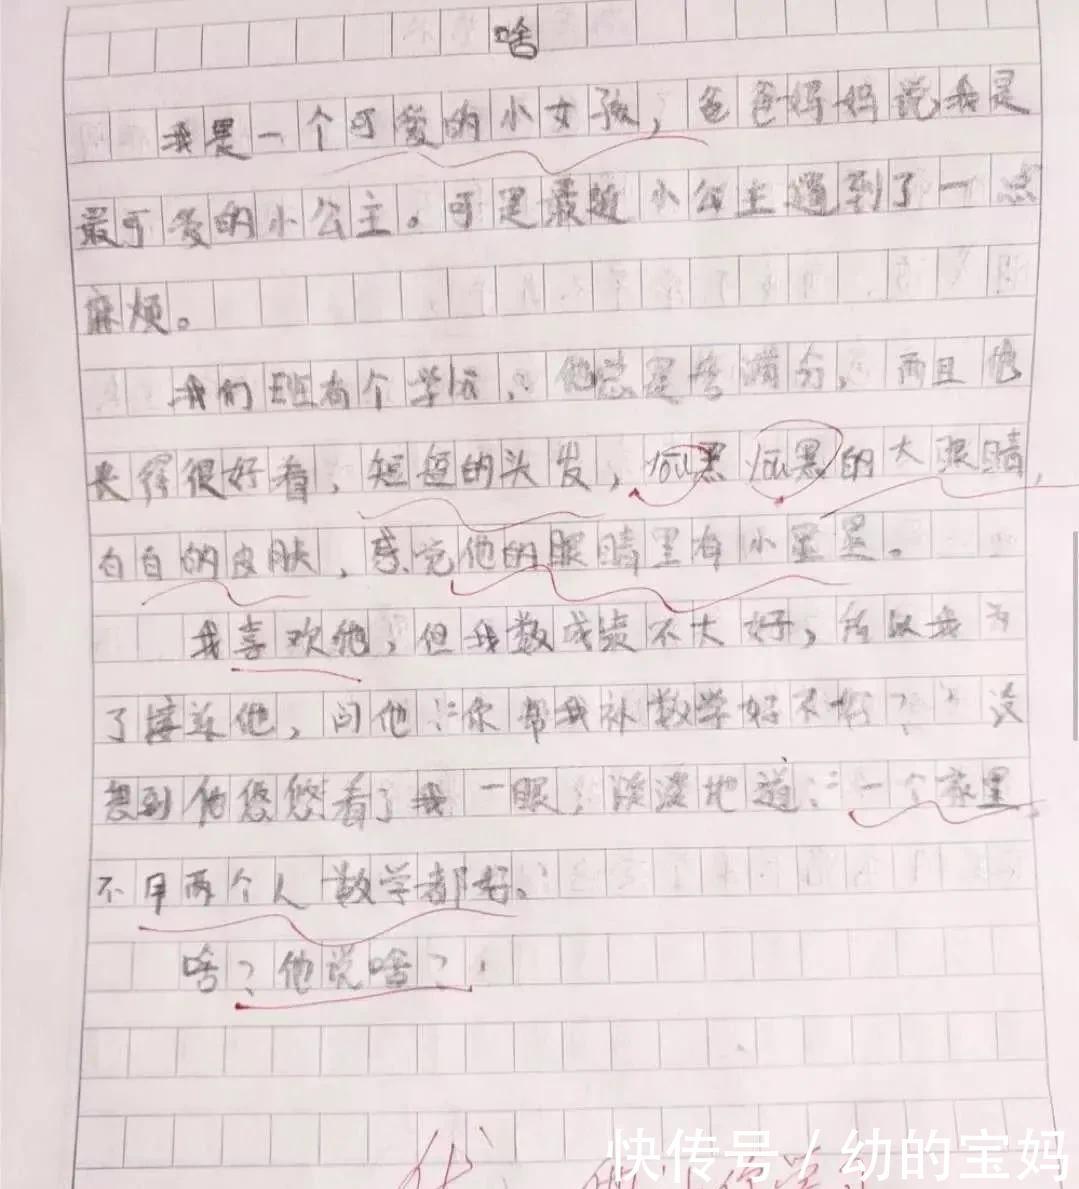 啥
我是一个可爱的小女孩，爸爸妈妈说我是
最可爱的小公主。可是最近小公主遇到了一点
麻烦。
我们班有个学伝，他总是考满分，而且他
长得很好看，短短的头发，youi黑youi黑的大眼睛，
白白的皮肤，感觉他的眼睛里有小星星。
我喜欢他，但我数成绩不大好，所以我为
了接近他，问他：你帮我补数学好不好？没
想到他悠悠看了我一眼，淡淡地道：一个家里
不用两个人数学都好。
啥？他说啥？
优
快传号 / 幼的宝妈